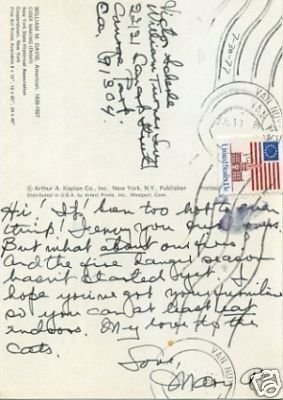 WILLIAM M. DAVIS, American, 1829-1920
CIDER MAKING (Detail)
New York State Historical Association
Cooperstown, New York
Fine Art Prints Available 8 x 10", 12 x 20", 24 x 40"
Victor
William
Street
Canoga Park
Ca. 91304
7-30-77
VAN NUY
United States 13c
© Arthur A. Kaplan Co., Inc. New York, N.Y., Publisher
Printed
Distributed in U.S.A. by Artext Prints, Inc., Westport, Conn.
Hi! It's been too hot to even
think! I envy you
But what about our fires!
And the fire danger season
hasn't started yet. I
hope you've got your
so you can at least eat
indoors. My love to the
cats.
Love,
Marie
VAN NU